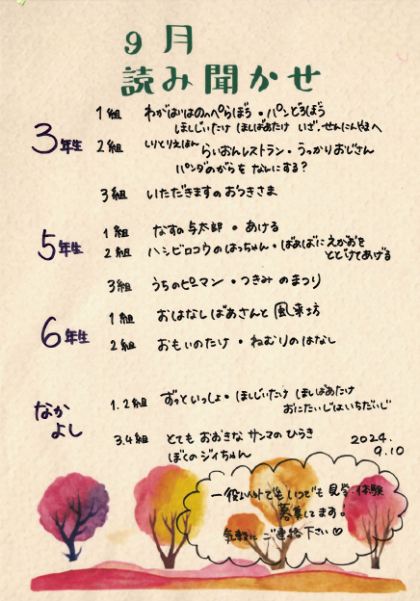 9月
読み聞かせ
3年生
1組 わがはいはのっぺらぼう・パンどろぼう
ほしじいたけ ほしばあたけ いざ、せんにんやまへ
2組 しりとりえほん らいおんレストラン・うっかりおじさん
パンダのがらを なんにする?
3組 いただきますのおつきさま
5年生
1組 なすの与太郎・あける
2組 ハシビロコウのはっちゃん・ばぁばにえがおを
とどけてあげる
3組 うちのピーマン・つきみのまつり
6年生
1組 おはなしばあさんと風来坊
2組 おもいのたけ・ねむりのはなし
なかよし
1.2組 ずっといっしょ・ほしじいたけ ほしばあたけ
おにたいじはいちだいじ
3.4組 とても おおきな サンマの ひらき
ぼくのジィちゃん
2024.
9.10
でもいつでも見学・体験
募集してます。
気軽に ご連絡下さい♡